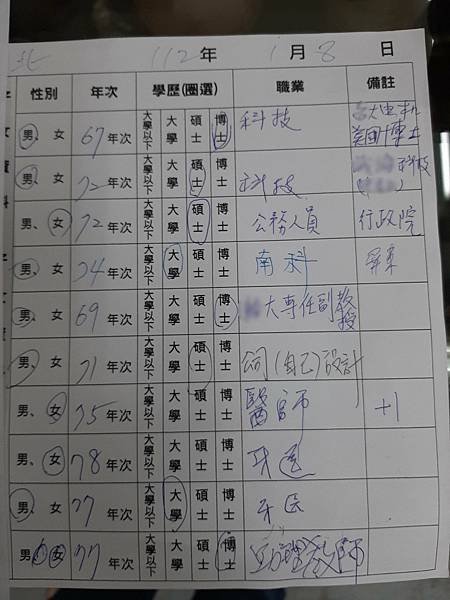 北 112年 1月8日
性別 年次 學歷(圈選) 職業 備註
男、女 67年次 大學以下 大學 碩士 博士 科技 大電機 美國博士
男、女 72年次 大學以下 大學 碩士 博士 科技 科技
男、女 72年次 大學以下 大學 碩士 博士 公務人員 行政院
男、女 74年次 大學以下 大學 碩士 博士 南科 屏東
男、女 69年次 大學以下 大學 碩士 博士 大專任副教授
男、女 71年次 大學以下 大學 碩士 博士 公司(自己)設計
男、女 75年次 大學以下 大學 碩士 博士 醫師 +1
男、女 78年次 大學以下 大學 碩士 博士 牙醫
男、女 77年次 大學以下 大學 碩士 博士 牙医
男、女 77年次 大學以下 大學 碩士 博士 心理教師